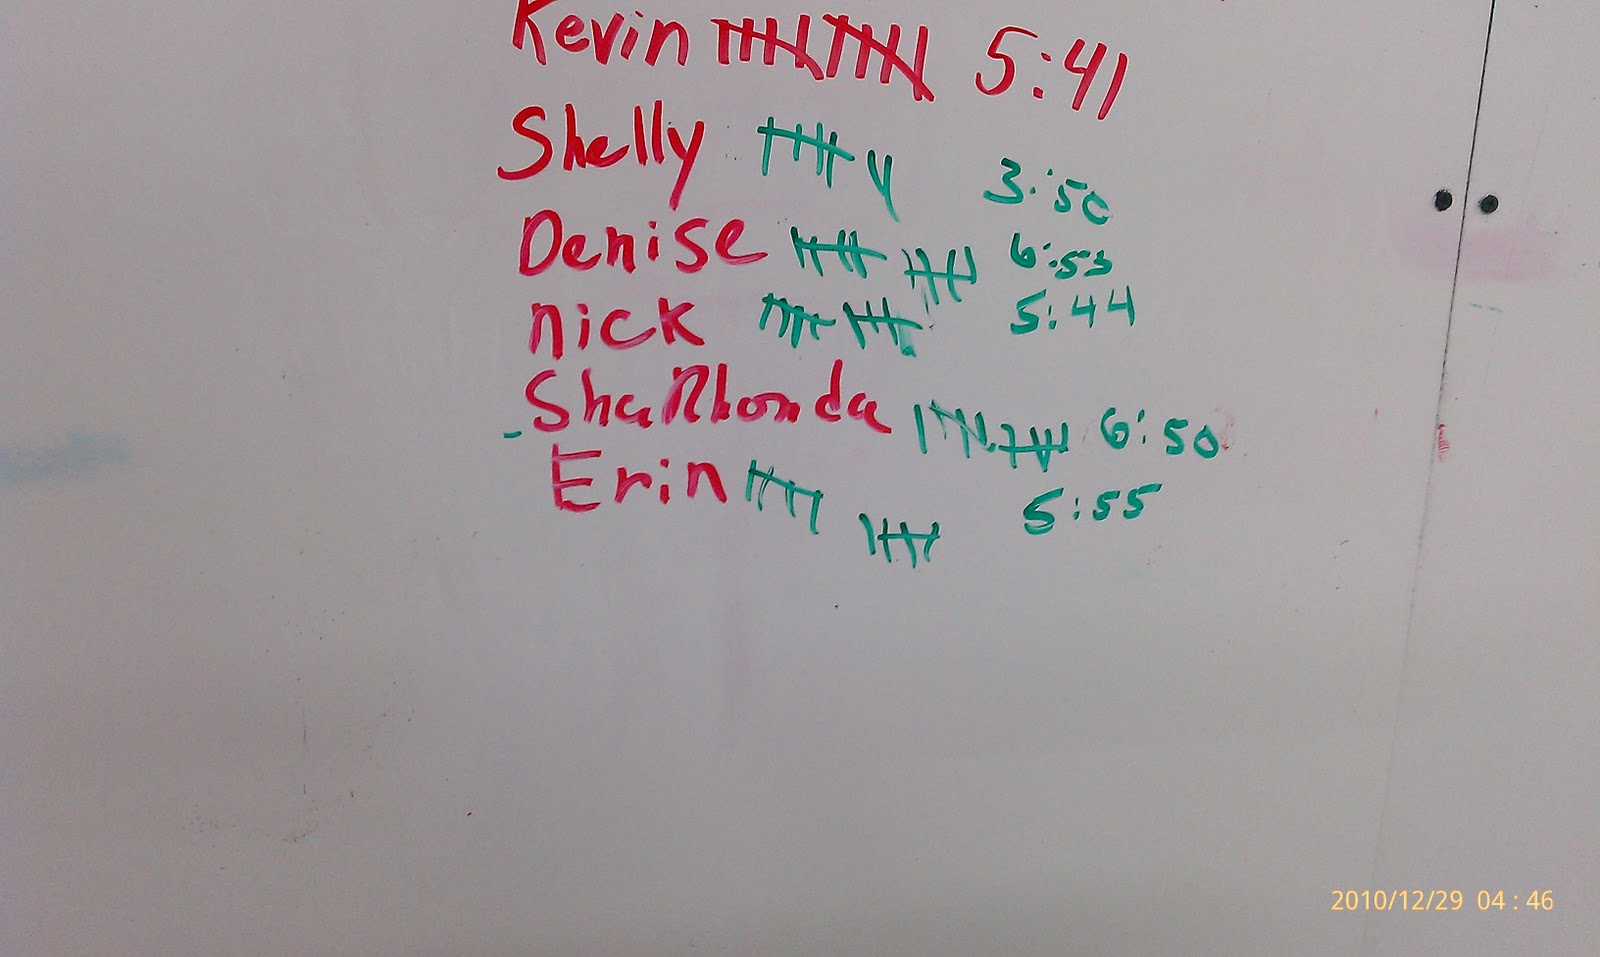 Kevin 5:41
Shelly 3:50
Denise 6:53
nick 5:44
ShaRhonda 6:50
Erin 5:55
2010/12/29 04:46